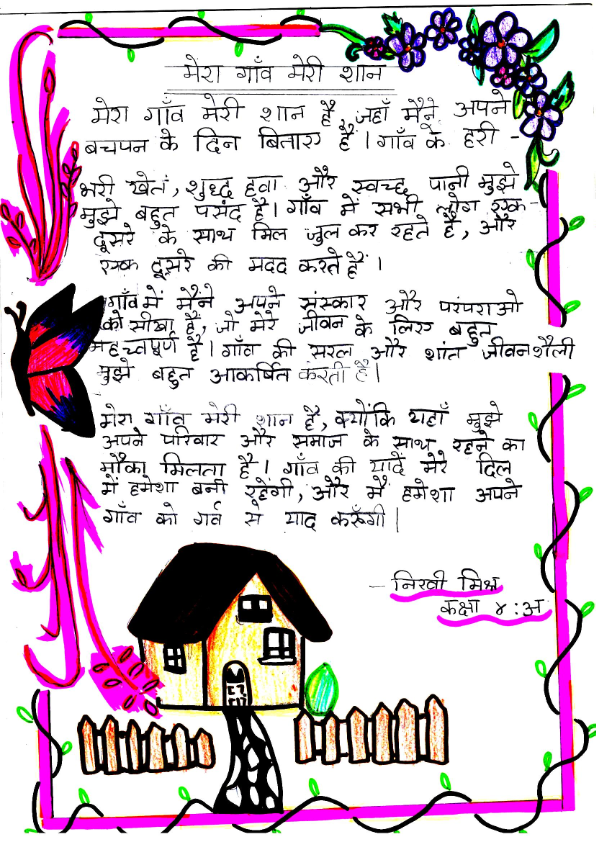 मेरा गाँव मेरी शान
मेरा गाँव मेरी शान है, जहाँ मैंने अपने
बचपन के दिन बिताए हैं । गाँव के हरी -
भरी खेतं, शुद्ध हवा और स्वच्छ पानी मुझे
मुझे बहुत पसंद है । गाँव में सभी लोग एक -
दूसरे के साथ मिल जुल कर रहते है, और
एक दूसरे की मदद करते हैं ।
गाँव में मैंने अपने संस्कार और परंपराओ
को सीखा है, जो मेरे जीवन के लिए बहुत
महत्त्वपूर्ण है । गाँव की सरल और शांत जीवनशैली
मुझे बहुत आकर्षित करती है ।
मेरा गाँव मेरी शान है, क्योंकि यहाँ मुझे
अपने परिवार और समाज के साथ रहने का
मौका मिलता है । गाँव की यादें मेरे दिल
में हमेशा बनी रहेंगी, और मैं हमेशा अपने
गाँव को गर्व से याद करूँगी |
- निरवी मिश्र
कक्षा ४ : अ